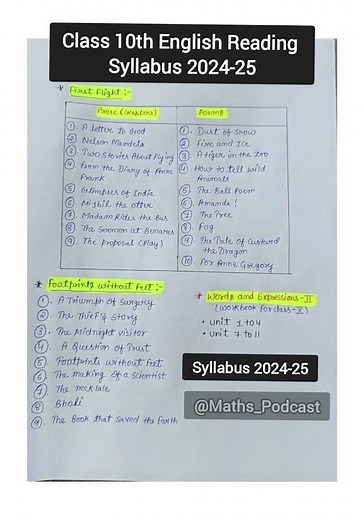 Class 10th English Reading
Syllabus 2024-25
* First Flight :-
Prose (Chapters)
1. A letter to God
2. Nelson Mandela
3. Two Stories About Flying
4 from the Diary of Anne
Frank
5 Glimpses of India
6 Mijbil the otter
7. Madam Rides the Bus
8 The Sermon at Benares
9. The proposal (Play)
Poems
1. Dust of Snow
2 Fire and Ice
3 A tiger in the Zoo
4 How to tell wild
Animals
5 The Ball Poem
6 Amanda!
7. The Tree
8 Fog
9 The Tale of Custard
the Dragon
10 For Anne Gregory
* Footprints without Feet :-
1. A Triumph of Surgery
2 The Thief's Story
3. The Midnight visitor
4 A Question of Trust
5 Footprints without Feet
6 The making of a scientist
7 The necklace
8 Bholi
9. The Book that saved the Earth
* Words and Expressions-II
(workbook for class-X)
• unit 1 to 4
• unit 7 to 11
Syllabus 2024-25
@Maths_Podcast